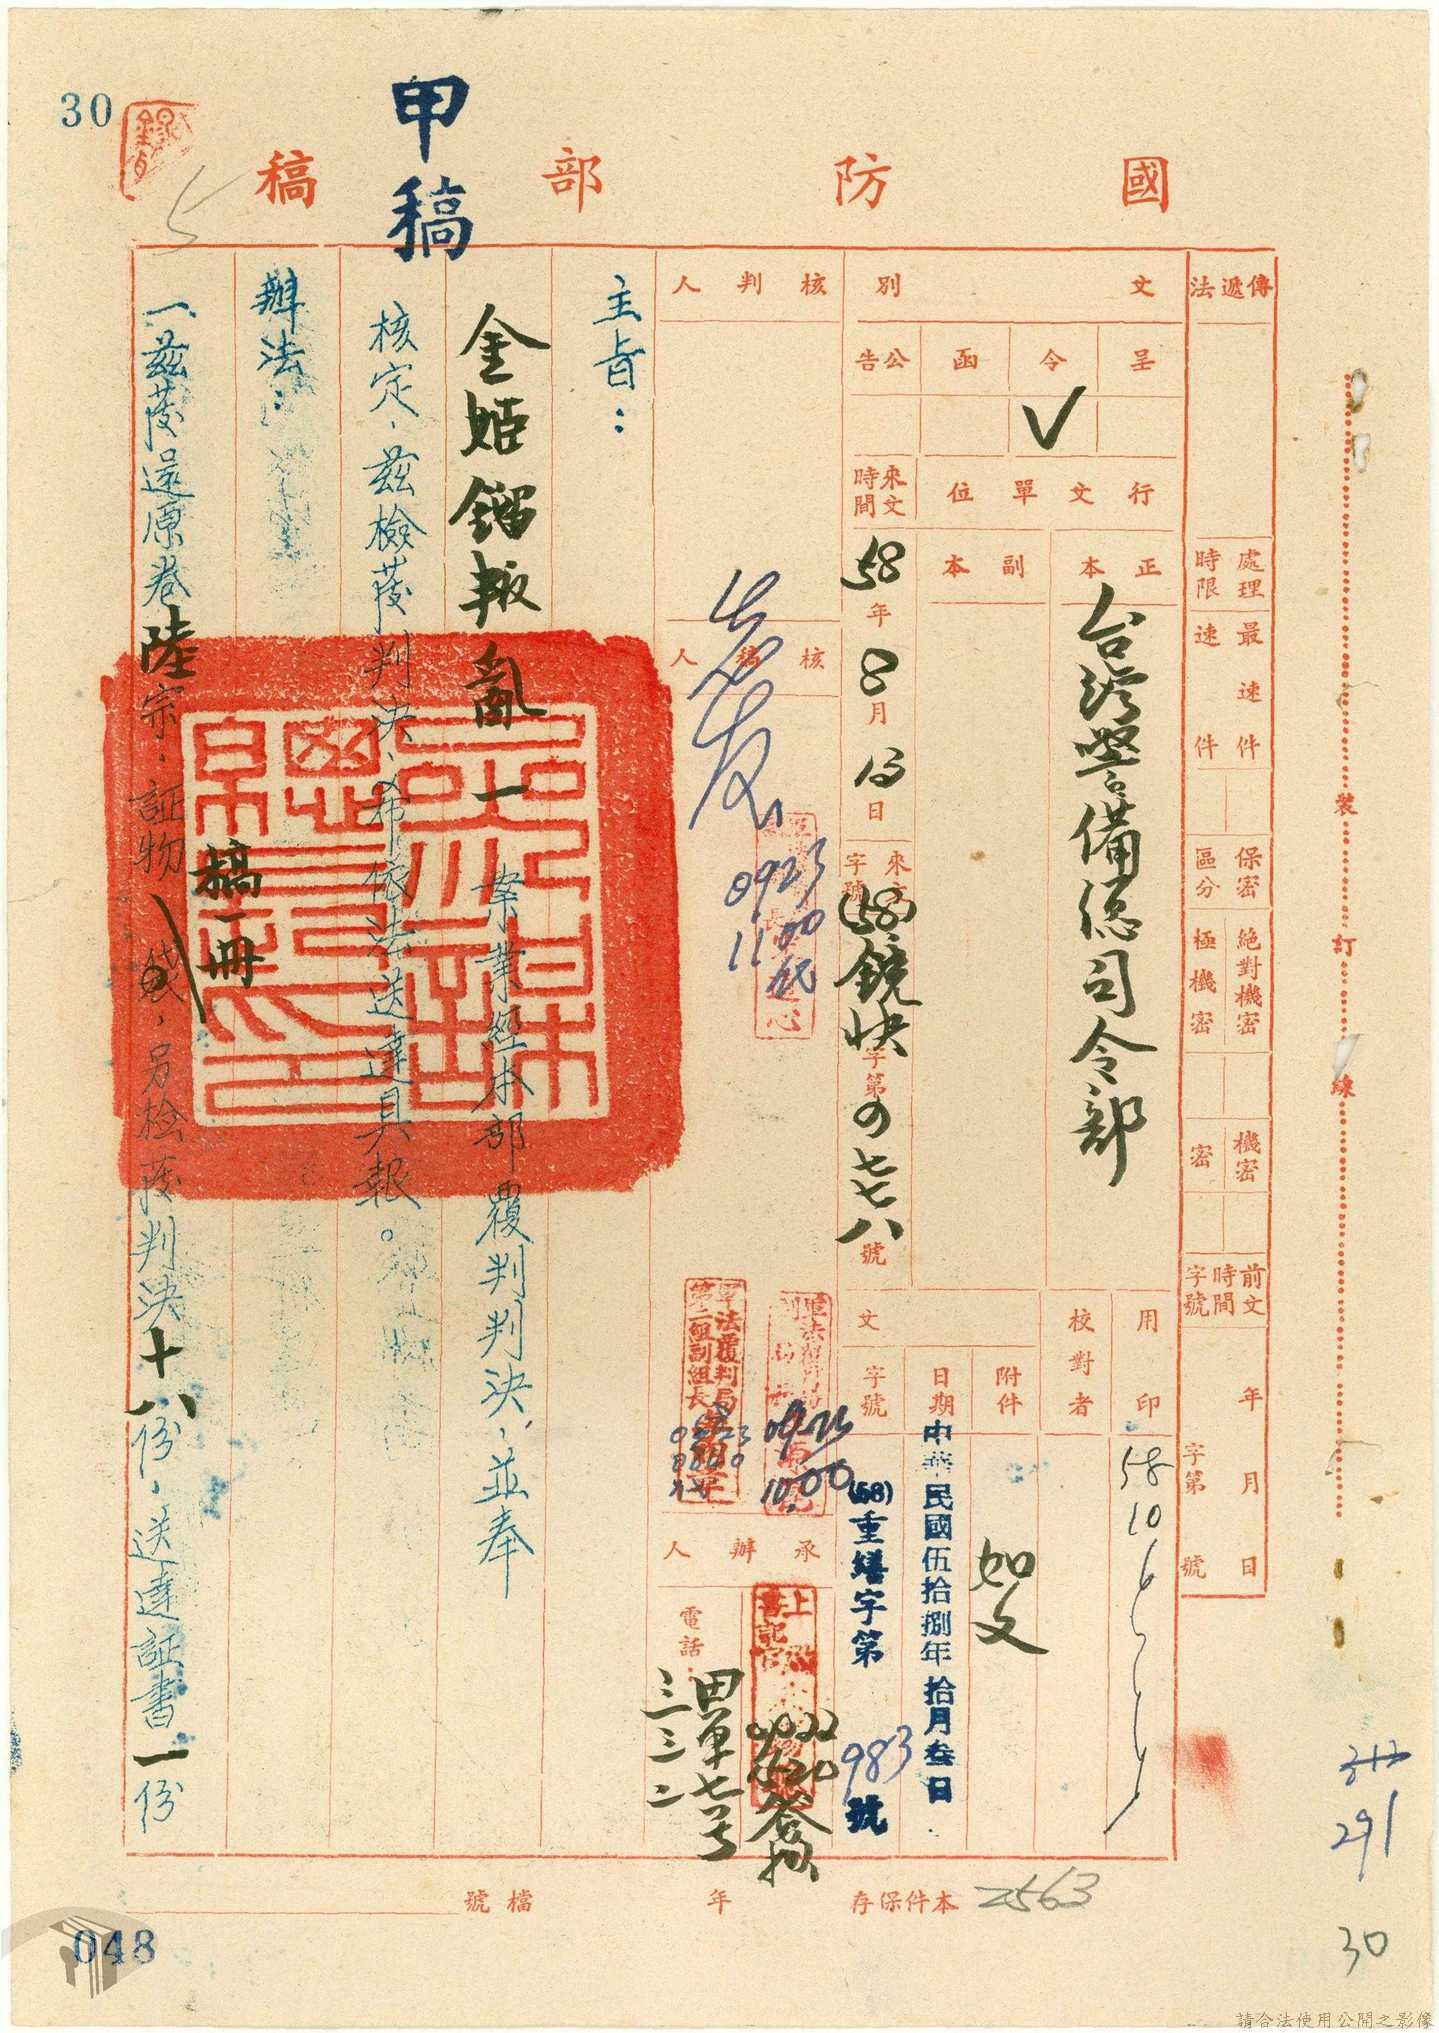 30
甲稿
國防部稿
傳遞法
處理時限
最速件
速件
保密區分
絕對機密
極機密
機密
密
前文時間字號
年月日
字第號
文別
呈
令
函
公告
✓
行文單位
正本
副本
台灣警備總司令部
來文時間
58年8月13日
來文字號
(58)鏡快字第の七七八號
用印
校對者
附件
如文
日期
中華民國伍拾捌年拾月叁日
文字號
(58)重繕字第983號
核判人
核稿人
0923
1100
軍法覆判局
第二組副組長
0923
10.00
承辦人
上
書記官
0922
1520
電話:
主旨：
金姬鎦叛亂一案業經本部覆判判決，並奉
核定，茲檢發判決，希依法送達具報。
辦法：
一、茲發還原卷陸宗，証物
稿一冊
，另檢發判決十八份，送達証書一份
裝訂線
本件保存
年
檔號
2563
312
291
30
048
請合法使用公開之影像